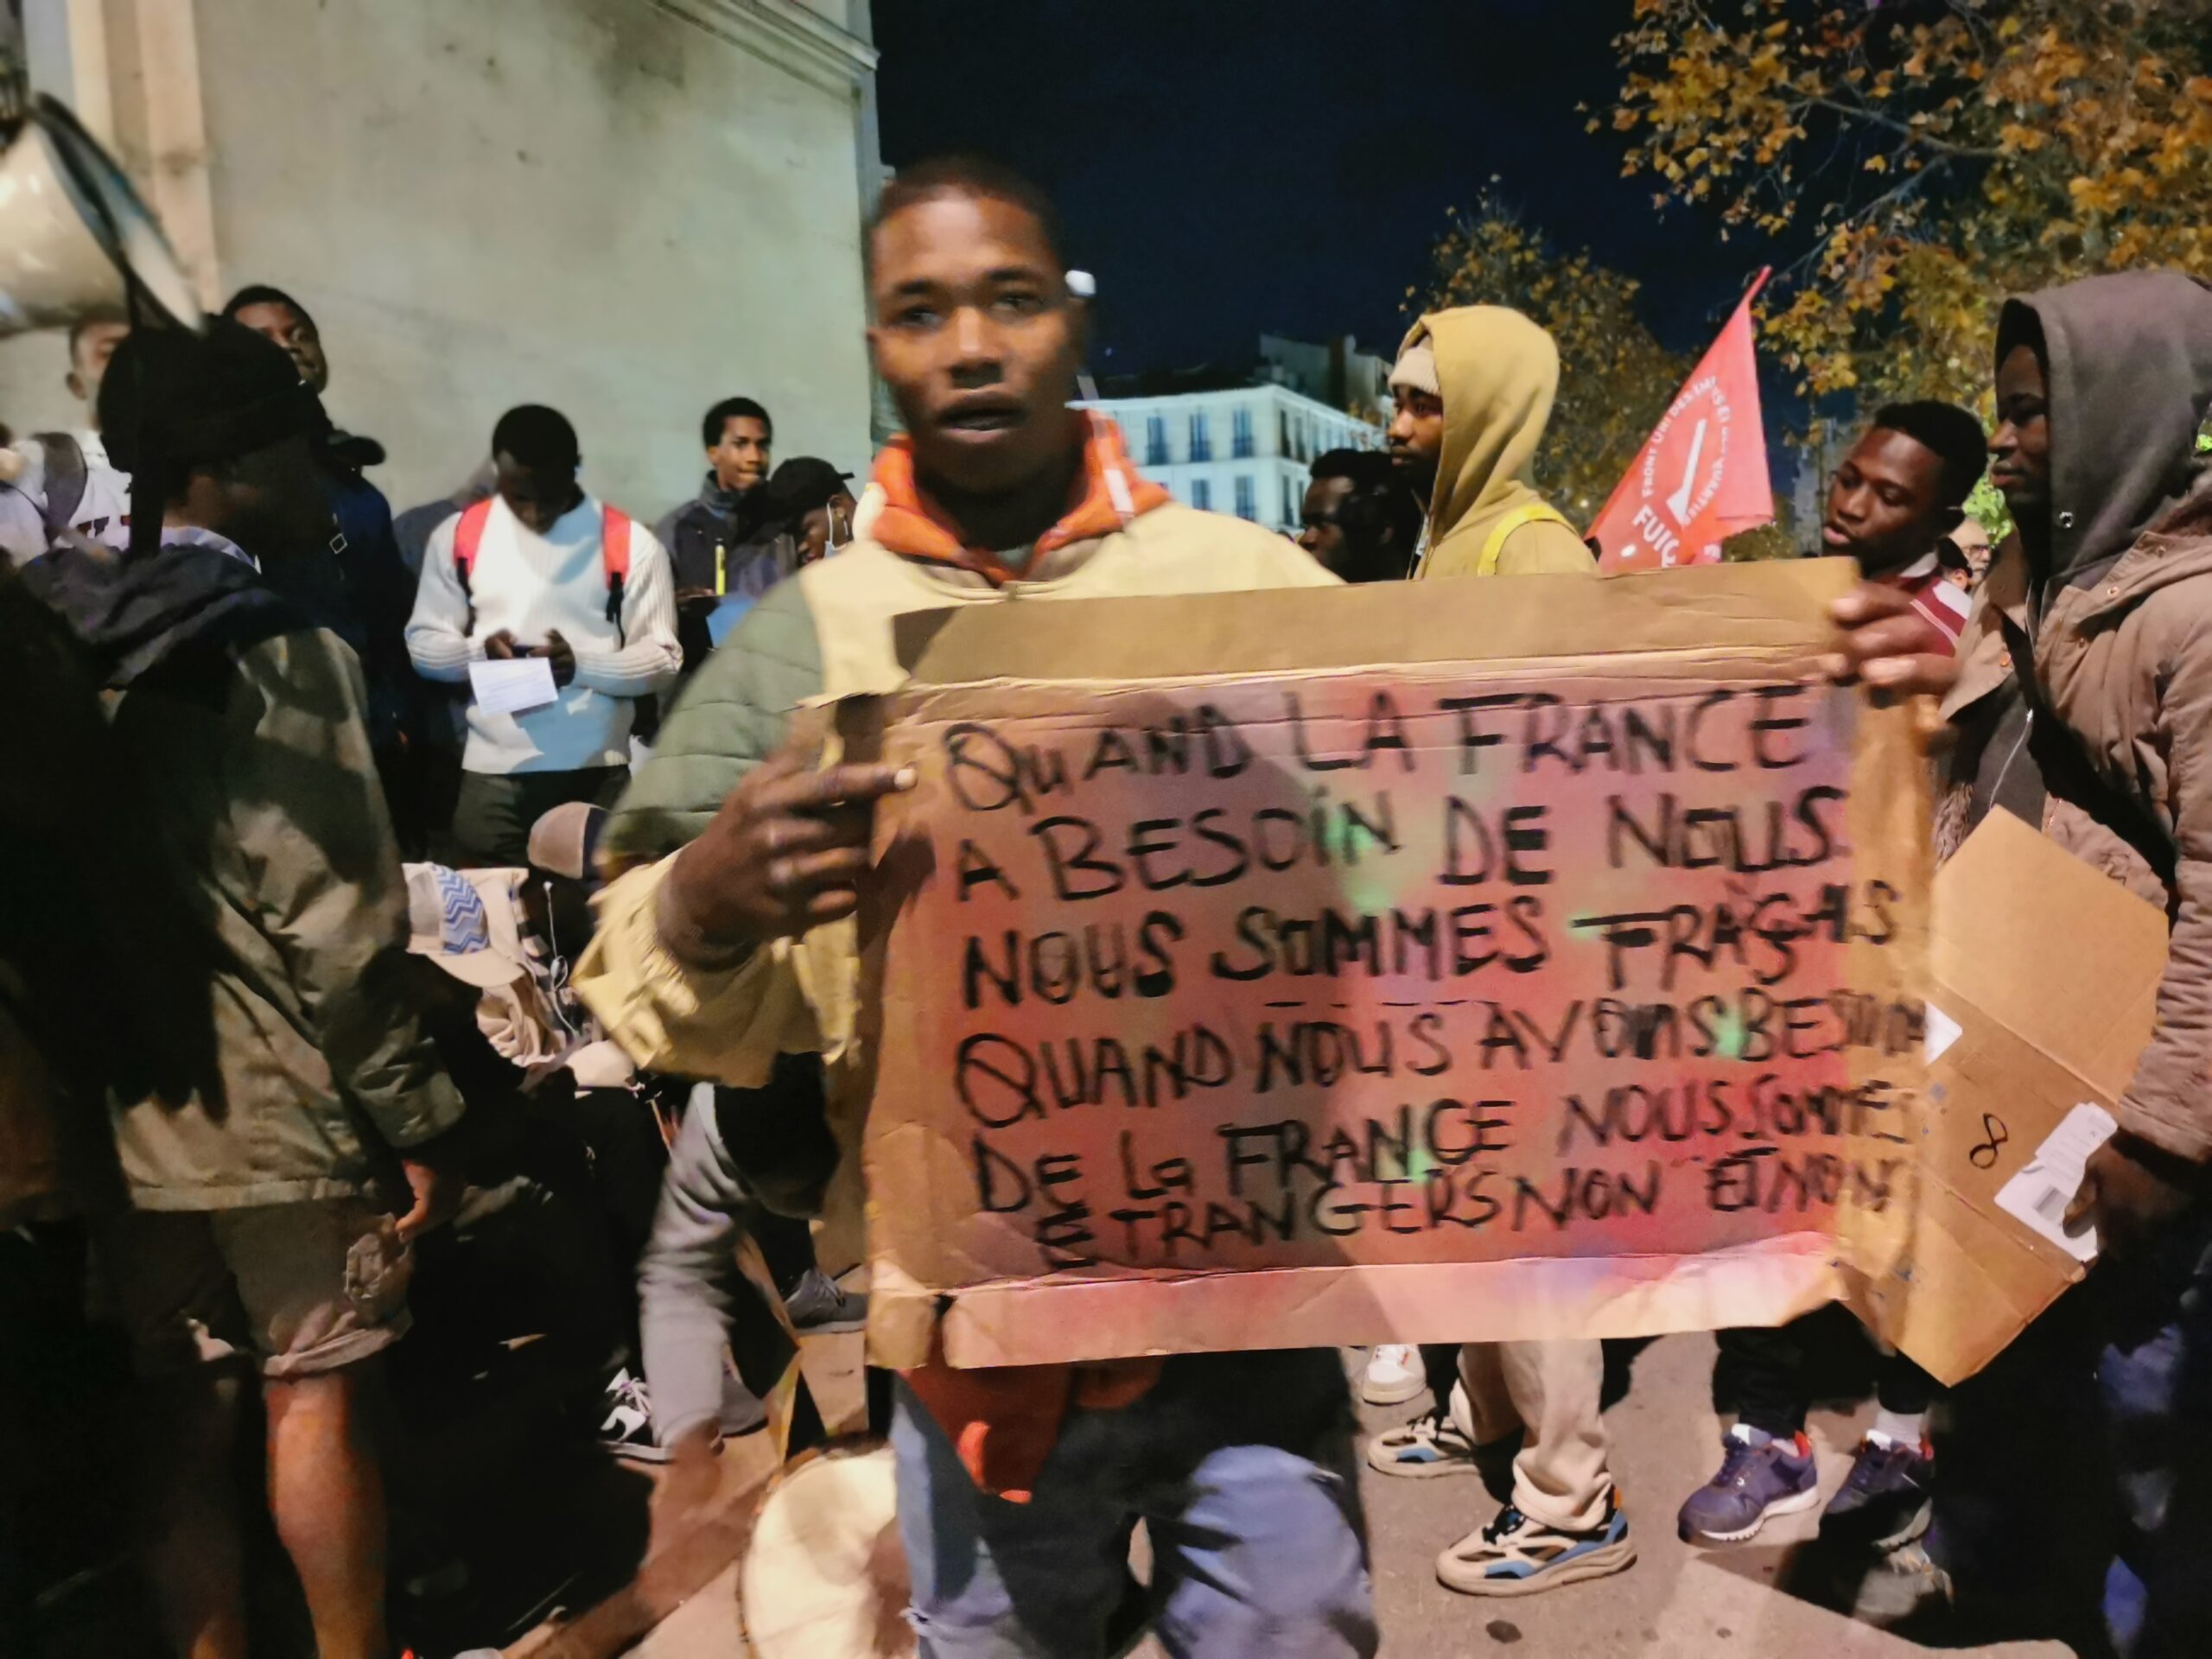 QUAND LA FRANCE
A BESOIN DE NOUS
NOUS SOMMES FRAÇAIS
QUAND NOUS AVONS BESOIN
DE La FRANCE NOUS SOMMES
ETRANGERS NON ET NON
FRONT UNI DES
FUIQ
8